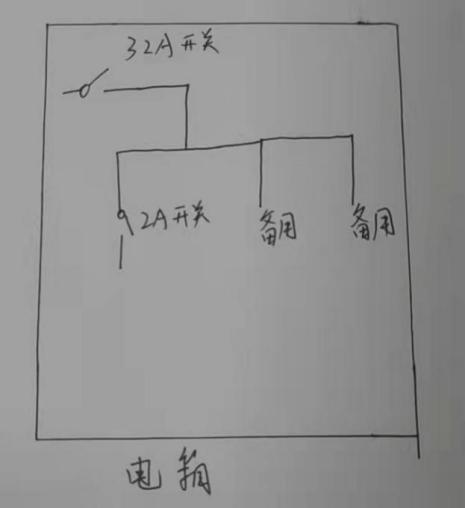 32A开关
2A开关
备用
备用
电箱